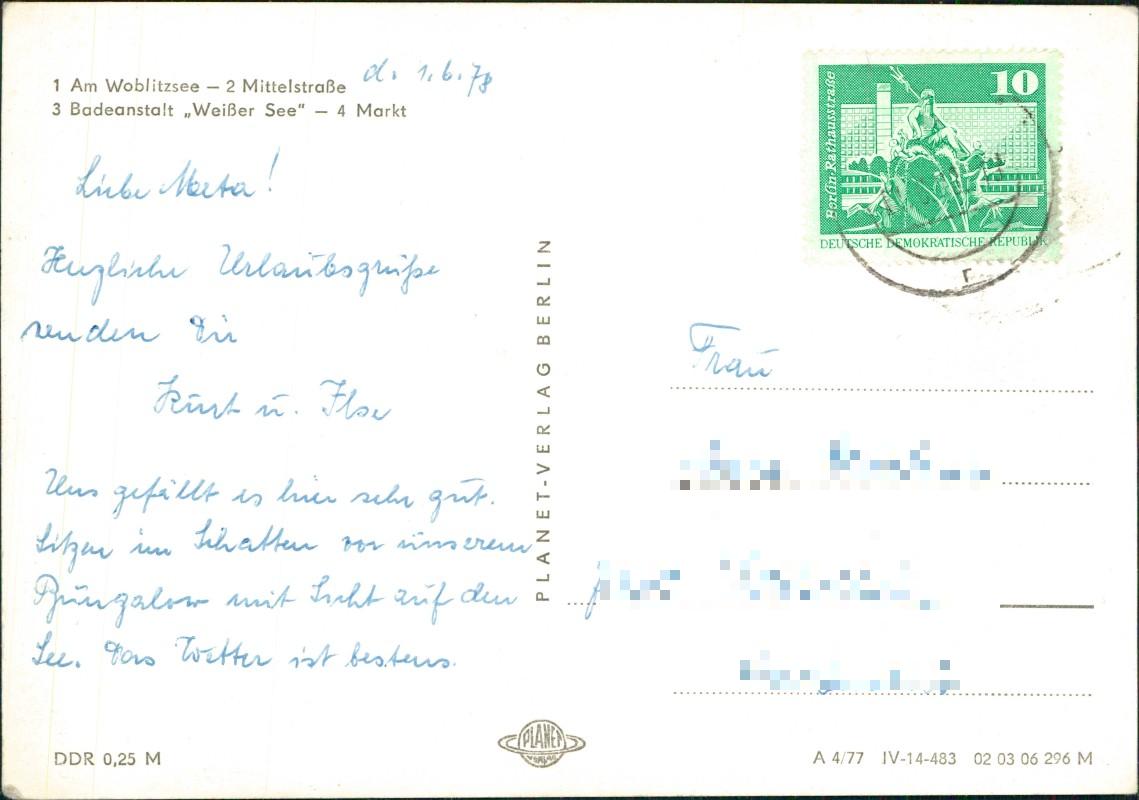 1 Am Woblitzsee – 2 Mittelstraße
3 Badeanstalt „Weißer See“ – 4 Markt
d. 1.6.78
Liebe Meta!
Herzliche Urlaubsgrüße
senden Dir
Kurt u. Ilse
Uns gefällt es hier sehr gut.
Sitzen im Schatten vor unserem
Bungalow mit Sicht auf den
See. Das Wetter ist bestens.
PLANET-VERLAG BERLIN
Berlin-Rathausstraße
10
DEUTSCHE DEMOKRATISCHE REPUBLIK
Frau
DDR 0,25 M
PLANET
VERLAG
A 4/77 IV-14-483 02 03 06 296 M